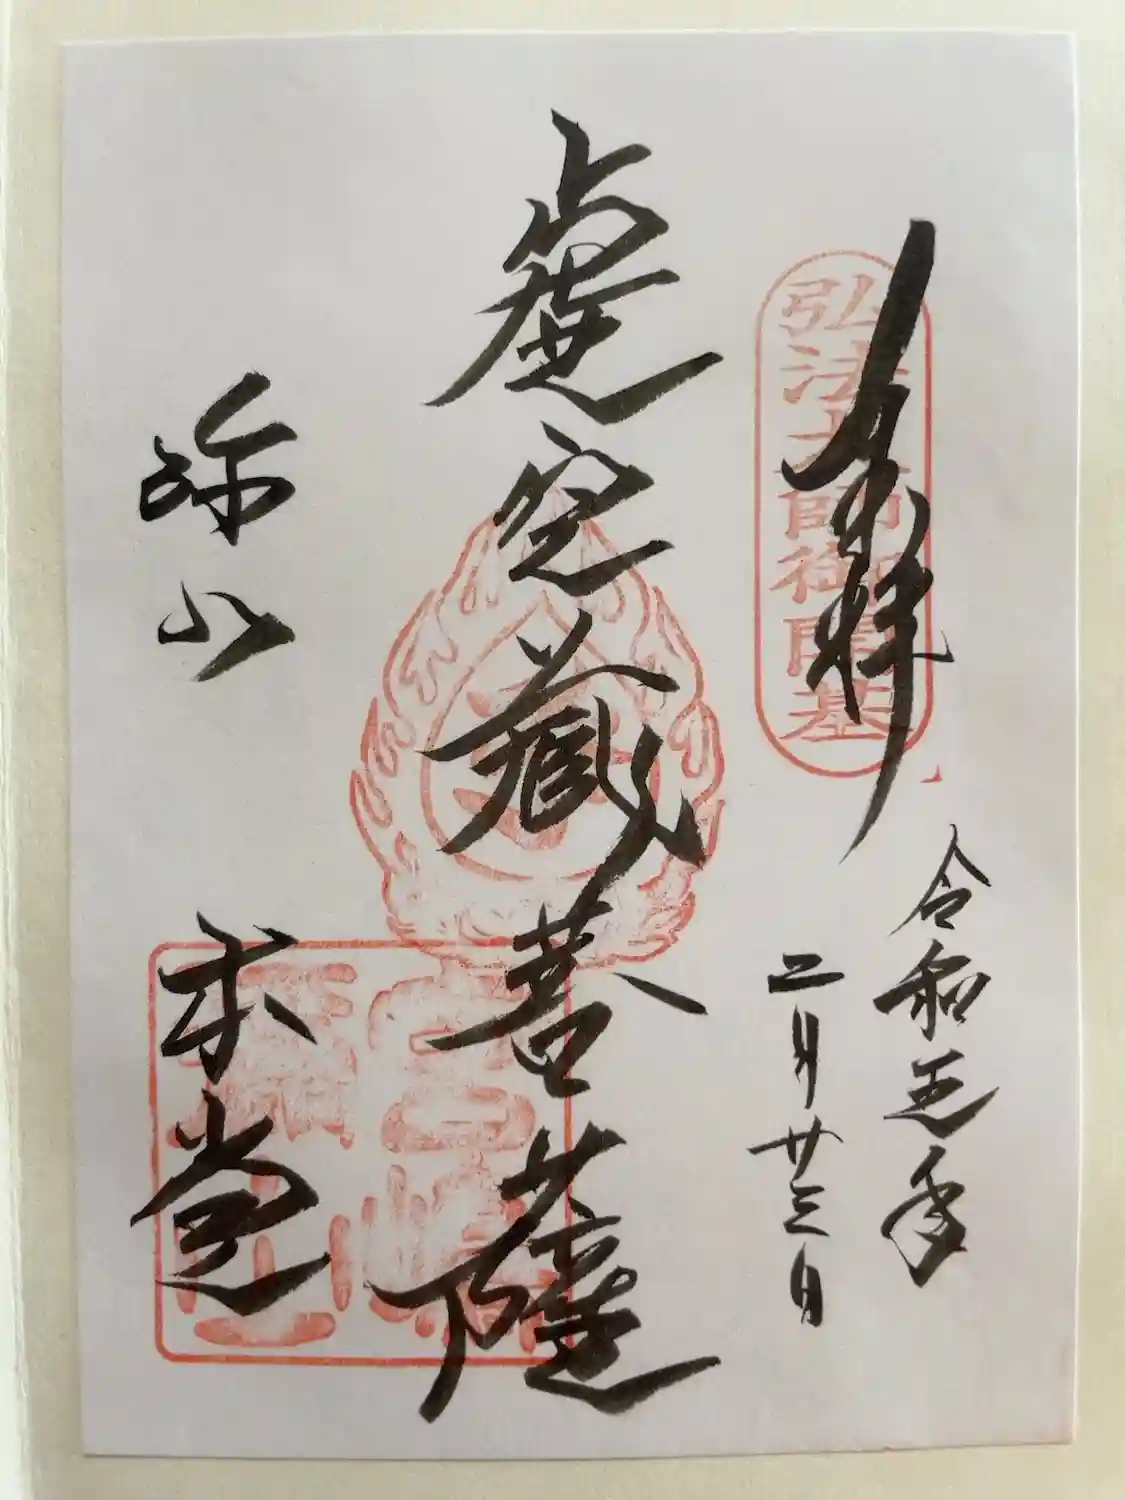 奉拝
弘法大師御開基
令和五年
二月廿三日
虚空蔵菩薩
弥山
本堂